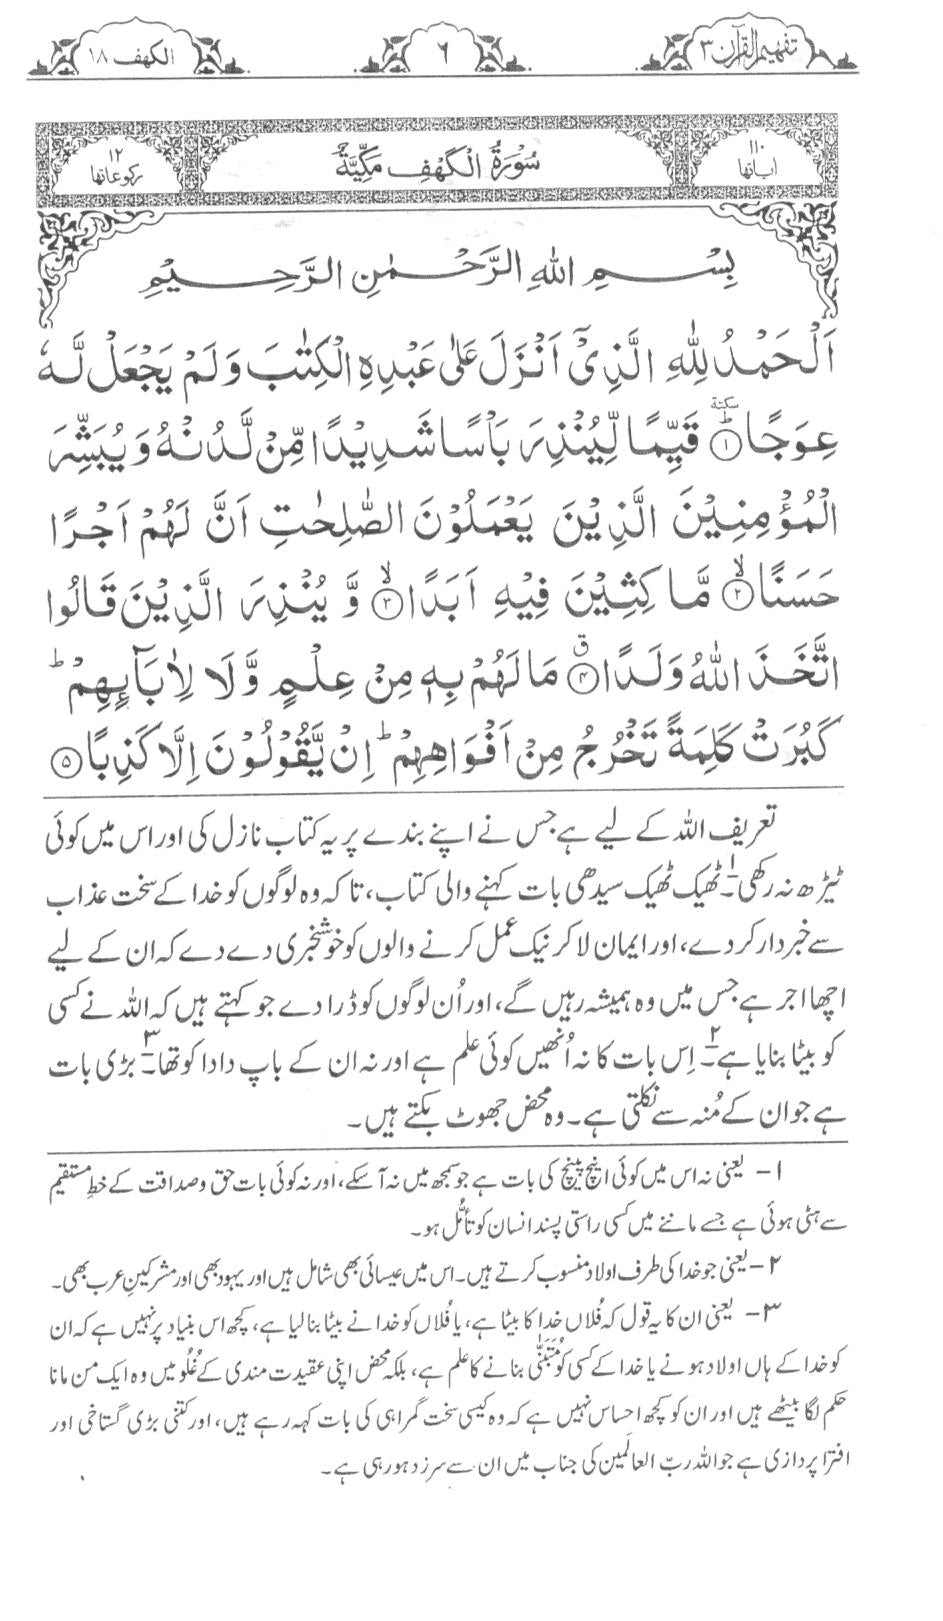 تفہیم القرآن ۳
۶
الکھف ۱۸
۱۱۰
اٰیاتھا
سُوْرَةُ الْكَهْفِ مَكِّيَّةٌ
۱۲
رکوعاتھا
بِسْمِ اللهِ الرَّحْمٰنِ الرَّحِيْمِ
اَلْحَمْدُ لِلّٰهِ الَّذِيْٓ اَنْزَلَ عَلٰى عَبْدِهِ الْكِتٰبَ وَلَمْ يَجْعَلْ لَّهٗ
عِوَجًا ؕ سكتة ۱ قَيِّمًا لِّيُنْذِرَ بَاْسًا شَدِيْدًا مِّنْ لَّدُنْهُ وَيُبَشِّرَ
الْمُؤْمِنِيْنَ الَّذِيْنَ يَعْمَلُوْنَ الصّٰلِحٰتِ اَنَّ لَهُمْ اَجْرًا
حَسَنًا ۙ ۲ مَّاكِثِيْنَ فِيْهِ اَبَدًا ۙ ۳ وَّيُنْذِرَ الَّذِيْنَ قَالُوا
اتَّخَذَ اللهُ وَلَدًا ۴ ق مَا لَهُمْ بِهٖ مِنْ عِلْمٍ وَّلَا لِاٰبَآىِٕهِمْ ؕ
كَبُرَتْ كَلِمَةً تَخْرُجُ مِنْ اَفْوَاهِهِمْ ؕ اِنْ يَّقُوْلُوْنَ اِلَّا كَذِبًا ۵
تعریف اللہ کے لیے ہے جس نے اپنے بندے پر یہ کتاب نازل کی اور اس میں کوئی
ٹیڑھ نہ رکھی۔۱ ٹھیک ٹھیک سیدھی بات کہنے والی کتاب، تاکہ وہ لوگوں کو خدا کے سخت عذاب
سے خبردار کر دے، اور ایمان لا کر نیک عمل کرنے والوں کو خوشخبری دے دے کہ ان کے لیے
اچھا اجر ہے جس میں وہ ہمیشہ رہیں گے، اور اُن لوگوں کو ڈرا دے جو کہتے ہیں کہ اللہ نے کسی
کو بیٹا بنایا ہے۔۲ اِس بات کا نہ اُنھیں کوئی علم ہے اور نہ ان کے باپ دادا کو تھا۔۳ بڑی بات
ہے جو ان کے مُنہ سے نکلتی ہے۔ وہ محض جھوٹ بکتے ہیں۔
۱ – یعنی نہ اس میں کوئی اینچ پینچ کی بات ہے جو سمجھ میں نہ آ سکے، اور نہ کوئی بات حق و صداقت کے خطِ مستقیم
سے ہٹی ہوئی ہے جسے ماننے میں کسی راستی پسند انسان کو تأمُّل ہو۔
۲ – یعنی جو خدا کی طرف اولاد منسوب کرتے ہیں۔ اس میں عیسائی بھی شامل ہیں اور یہود بھی اور مشرکینِ عرب بھی۔
۳ – یعنی ان کا یہ قول کہ فُلاں خدا کا بیٹا ہے، یا فُلاں کو خدا نے بیٹا بنا لیا ہے، کچھ اس بنیاد پر نہیں ہے کہ ان
کو خدا کے ہاں اولاد ہونے یا خدا کے کسی کو مُتَبَنّٰی بنانے کا علم ہے، بلکہ محض اپنی عقیدت مندی کے غُلُو میں وہ ایک من مانا
حکم لگا بیٹھے ہیں اور ان کو کچھ احساس نہیں ہے کہ وہ کیسی سخت گمراہی کی بات کہہ رہے ہیں، اور کتنی بڑی گستاخی اور
افترا پردازی ہے جو اللہ ربّ العالمین کی جناب میں ان سے سرزد ہو رہی ہے۔